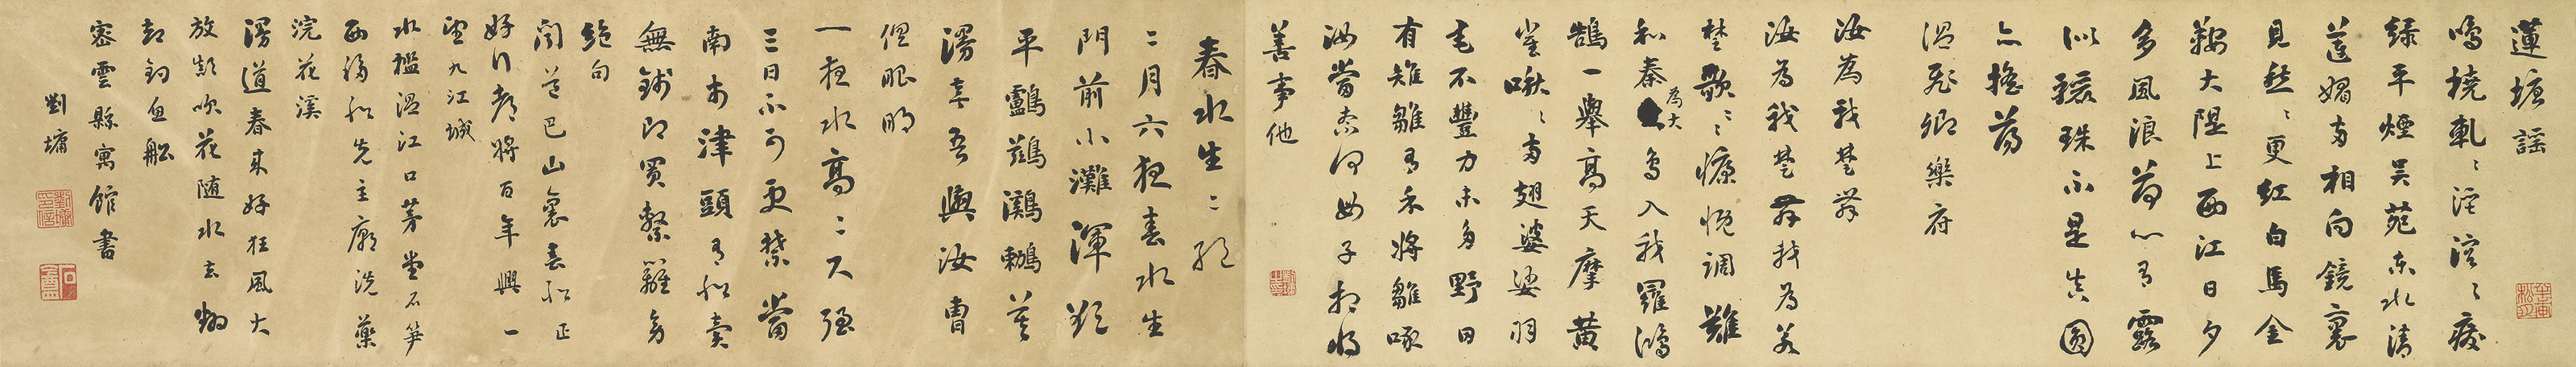 蓮塘謠
鳴橈軋〻溪溶〻廢
綠平煙吳苑東水清
蓮媚兩相向鏡裏
見愁〻更紅白馬金
鞭大隄上西江日夕
多風浪荷心有露
似驪珠不是真圓
亦搖蕩
溫飛卿樂府
汝為我楚舞
汝為我楚舞我為若
楚歌〻〻慷慨調難
和秦為大鳥入我羅鴻
鵠一舉高天摩黃
雀啾〻兩翅婆娑羽
毛不豐力未多野田
有雉雛有禾將雛啄
汝當柰何母子相將
善事他
春水生二絕
二月六夜春水生
門前小灘渾欲
平鸕鶿鸂鶒莫
漫喜吾與汝曹
俱眼明
一夜水高二尺強
三日不可更禁當
南市津頭有船賣
無錢即買繫籬旁
絕句
聞道巴山裏春船正
好行都將百年興一
望九江城
水檻溫江口茅堂石筍
西移船先主廟洗藥
浣花溪
漫道春來好狂風大
放顛吹花隨水去翻
卻釣魚船
密雲縣寓館書
劉墉